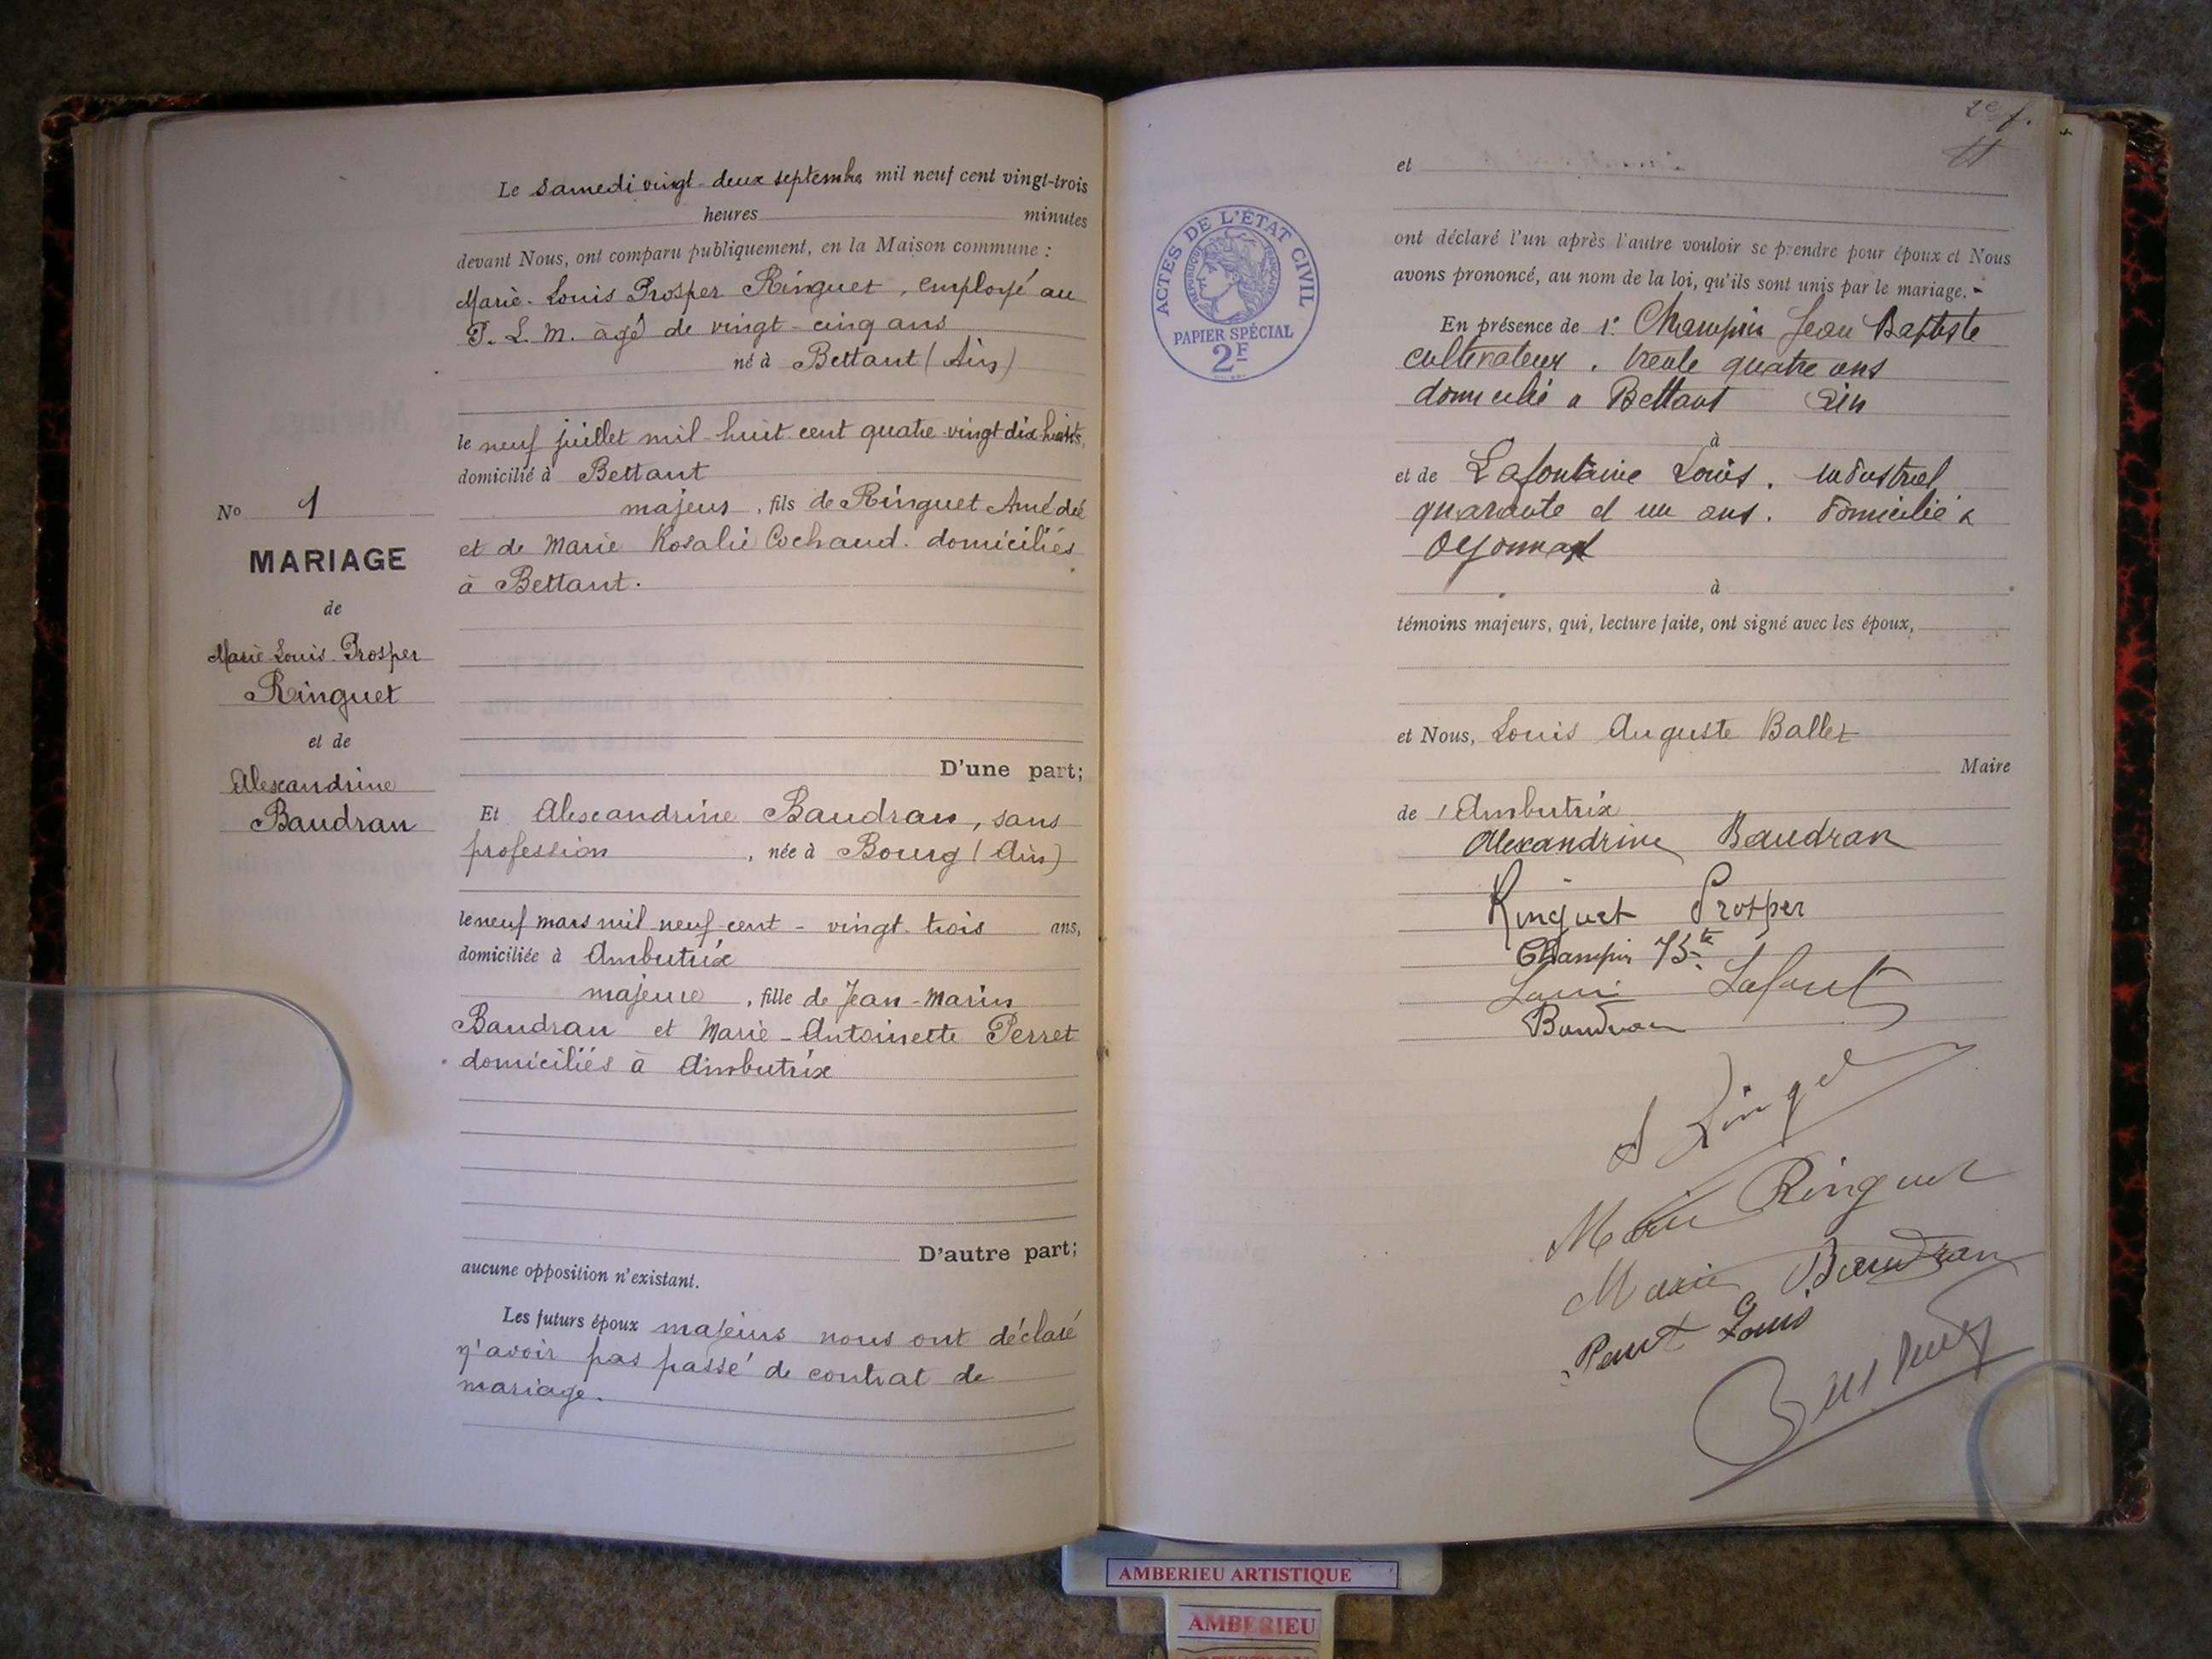 Le Samedi vingt-deux septembre mil neuf cent vingt-trois
heures minutes
devant Nous, ont comparu publiquement, en la Maison commune :
Marie-Louis Prosper Ringuet, employé au
P. L. M. âgé de vingt-cinq ans
né à Bettant (Ain)
le neuf juillet mil-huit cent quatre-vingt dix-huit,
domicilié à Bettant
majeur, fils de Ringuet Amédée
et de Marie Rosalie Cochaud. domiciliés
à Bettant.
No 1
MARIAGE
de
Marie Louis Prosper
Ringuet
et de
Alexandrine
Baudran
D'une part;
Et Alexandrine Baudran, sans
profession, née à Bourg (Ain)
le neuf mars mil neuf cent - vingt-trois ans,
domiciliée à Ambutrix
majeure, fille de Jean-Marin
Baudran et Marie-Antoinette Perret
domiciliés à Ambutrix
D'autre part;
aucune opposition n'existant.
Les futurs époux majeurs nous ont déclaré
n'avoir pas passé de contrat de
mariage.
et
ACTES DE L'ÉTAT CIVIL
RÉPUBLIQUE FRANÇAISE
PAPIER SPÉCIAL
2F
ont déclaré l'un après l'autre vouloir se prendre pour époux et Nous
avons prononcé, au nom de la loi, qu'ils sont unis par le mariage.-
En présence de 1º Champin Jean Baptiste
cultivateur. trente quatre ans
domicilié a Bettant Ain
à
et de Lafontaine Louis. industriel
quarante et un ans. domicilié à
Oyonnax
à
témoins majeurs, qui, lecture faite, ont signé avec les époux,
et Nous, Louis Auguste Ballet
Maire
de Ambutrix
Alexandrine Baudran
Ringuet Prosper
Champin Bte
Louis Lafont
Baudran
Ringuet
Marie Ringuet
Marie Baudran
Louis
AMBERIEU ARTISTIQUE
AMBERIEU
ARTISTIQUE